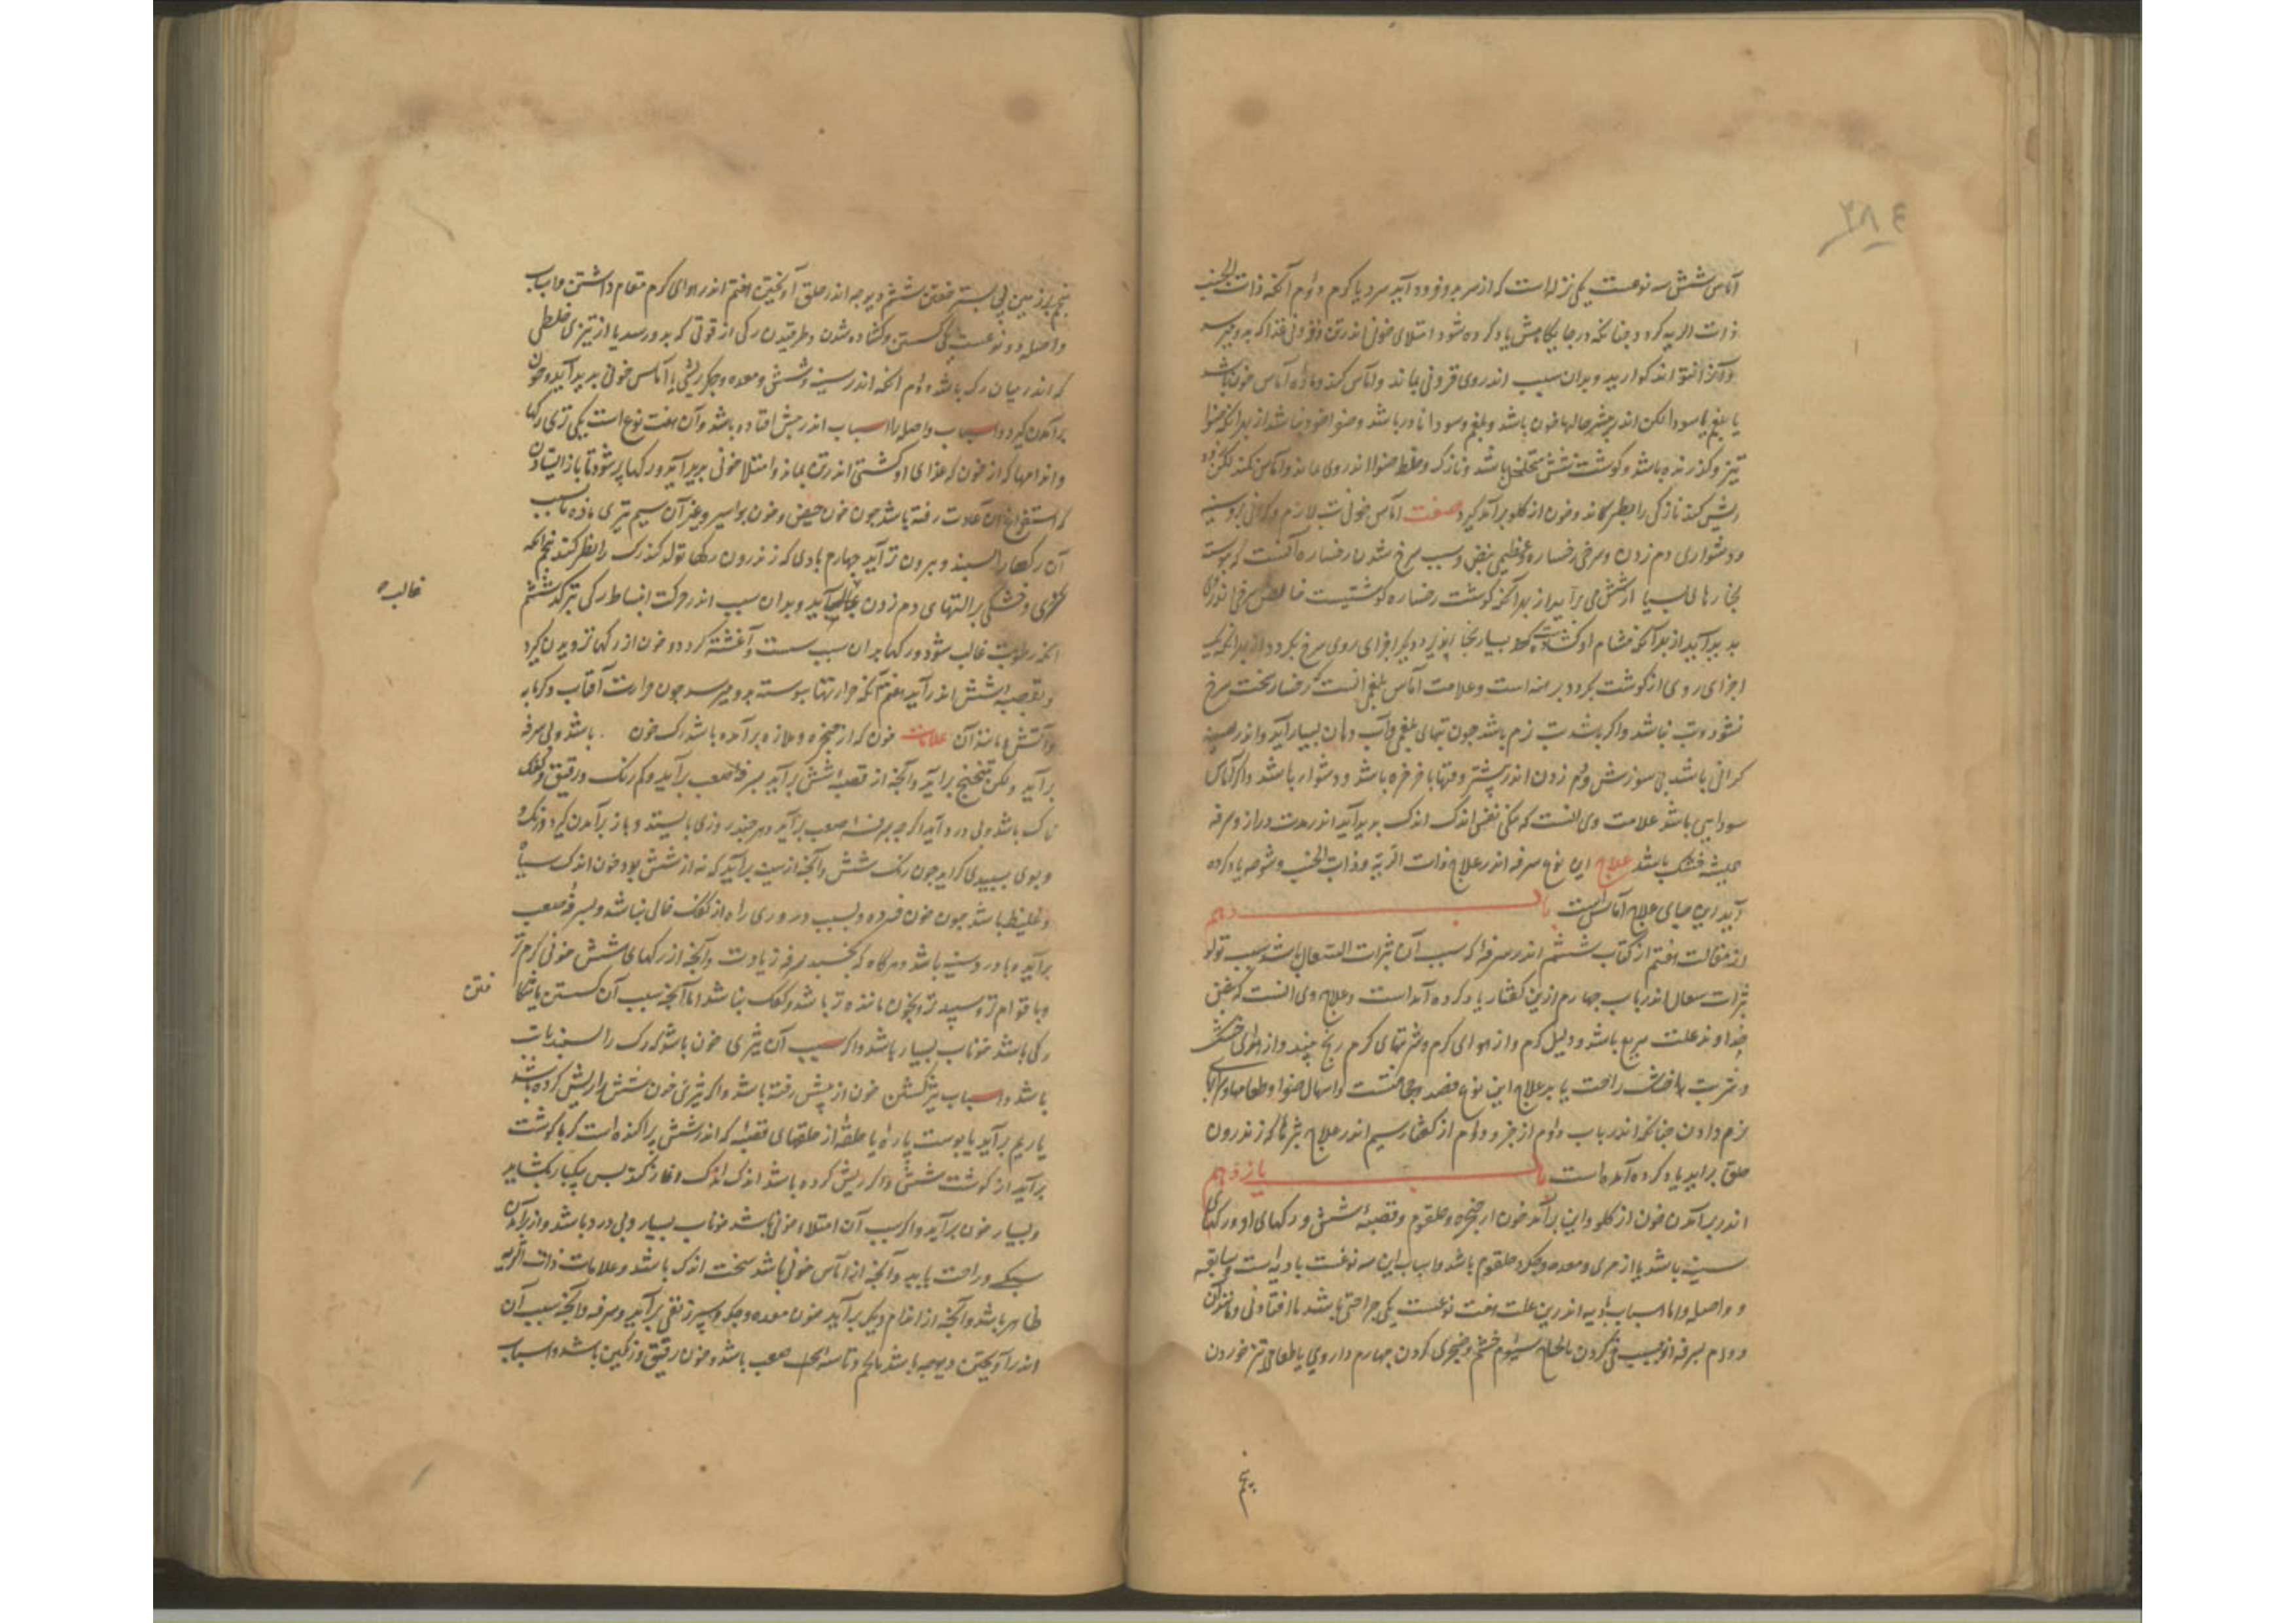 ۲۸٤
آماس شش سه نوعست یکی نزله است که از سر فرود آید سرد یا کرم دوم آنکه ذات الجنب
ذات الریه کردد چنانکه در جایکاهش یاد کرده شود امتلای خونی اندر تن و فزونی غذا که بدو میرسد
اندر وی فزونی بماند و آماس کند و ماده آماس خون باشد
یا بلغم یا سودا لکن اندر بیشتر حالها خون باشد و بلغم و سودا نادر باشد و صفرا خود نباشد از بهر آنکه صفرا
تیز و کذرنده باشد و کوشت شش متخلخل باشد و نازک و خلط صفرا اندر وی نماند و آماس نکند لکن
ریش کند نازکی را بطرکاند و خون از کلو برآمدن کیرد صفت آماس خونی تب لازم و کرانی بر سینه
و دشواری دم زدن و سرخی رخساره و عظیمی نبض و سبب سرخ شدن رخساره آنست که پیوسته
بخارهای بسیار از شش می برآید از بهر آنکه کوشت رخساره کوشتیست خالص سرخی اندر وی
پدید آید از بهر آنکه مسام او کشادست بسیار بخار پذیرد و دیکر اجزای روی سرخ نکردد از بهر آنکه
اجزای روی از کوشت برهنه است و علامت آماس بلغمی آنست که رخسار سخت سرخ
نشود و تب نباشد و اکر باشد تب نرم باشد چون تبهای بلغمی و آب دهان بسیار آید و اندر سینه
کرانی باشد بی سوزش و دم زدن اندر بیشتر وقتها با خرخره باشد و دشوار باشد و اکر آماس
سودایی باشد علامت وی آنست که تنکی نفس اندک اندک پدید آید اندر مدت دراز و سرفه
همیشه خشک باشد علاج این نوع سرفه اندر علاج ذات الریه و ذات الجنب و شوصه یاد کرده
آید این جای علاج آماس است باب دهم
از مقالت هفتم از کتاب ششم اندر سرفه که سبب آن بثرات السعال باشد سبب تولد
بثرات سعال اندر باب چهارم ازین کفتار یاد کرده آمدست و علاج وی آنست که نبض
خداوند علت سریع باشد و دلیل کرم و از هوای کرم و شربتهای کرم رنج بیند و از هوای خنک
و شربت خنک راحت یابد علاج این نوع فصد و حجامتست و اسهال صفرا و طعامها و شرابهای
نرم دادن چنانکه اندر باب دوم از جزو دوم از کفتار سیم اندر علاج بثرها که اندرون
حلق برآید یاد کرده آمده است باب یازدهم
اندر برآمدن خون از کلو و این برآمدن خون از حنجره و حلقوم و قصبه شش و رکهای او و رکهای
سینه باشد یا از مری و معده و جکر و حلقوم باشد و اسباب این سه نوعست بادیه است و سابقه
و واصله و اما اسباب بادیه اندرین علت هفت نوعست یکی جراحتی باشد یا افتادنی و مانند آن
دوم سرفه سیوم خشم و ضجری کردن چهارم داروی یا طعامی تیز خوردن
پنجم
پنجم بر زمین بی بستر خفتن ششم دیوچه اندر حلق آویختن هفتم اندر هوای کرم مقام داشتن و اسباب
واصله دو نوعست یکی کسستن و کشاده شدن و طرقیدن رکی از قوتی که بدو رسد یا از تیزی خلطی
که اندر میان رک باشد دوم آنکه اندر سینه و شش و معده و جکر ریشی یا آماس خونی پدید آید و خون
برآمدن کیرد و اسباب واصله را اسباب اندر پیش افتاده باشد و آن هفت نوع است یکی تری رکها
و اندامها که از خون که غذای او کشتی اندر تن بماند و امتلا خونی پدید آید و رکها پر شود تا باز ایستادن
که استفراغ آن عادت رفته باشد چون خون حیض و خون بواسیر و غیر آن سیم تیزی ماده بسبب
آن رکها را بسنبد و بیرون تر آید چهارم بادی که اندرون رکها تولد کند رک را بطرکند پنجم آنکه
کرمی و خشکی بر آلتهای دم زدن غالب آید و بدان سبب اندر حرکت انبساط رکی بترکد ششم
آنکه رطوبت غالب شود و رکها بدان سبب سست و آغشته کردد و خون از رکها تزویدن کیرد
و بقصبه شش اندر آید هفتم آنکه حرارتها پیوسته بدو میرسد چون حرارت آفتاب و کرمابه
و آتش و مانند آن علامات خون که از حنجره و ملازه برآمده باشد رک خون باشد و بی سرفه
برآید ولکن بتنحنح برآید و آنچه از قصبه شش برآید بسرفه صعب برآید و کم رنک و رقیق و کفک
ناک باشد و بی درد آید اکرچه بسرفه صعب برآید و هر چند روزی بایستد و باز برآمدن کیرد و رنک
و بوی بسپیدی کراید چون رنک شش و آنچه از سینه برآید که نه از شش بود خون اندک سیاه
و غلیظ باشد چون خون فسرده و بسبب دوری راه از کفک خالی نباشد و بسرفه صعب
برآید و با درد سینه باشد و هرکاه که بخسبد سرفه زیادت و آنچه از رکهای شش خونی کرم تر
و با قوام تر و سپیدتر و بخون ماننده تر باشد و کفک نباشد اما آنچه سبب آن کسستن یا شکافتن
رکی باشد خوناب بسیار باشد و اکر سبب آن تیزی خون باشد که رک را بسنبد تب
باشد و اسباب تیز کشتن خون از پیش رفته باشد و اکر تیزی خون شش را ریش کرده باشد
یا ریم برآید یا پوست پاره یا حلقه از حلقهای قصبه که اندر شش پراکنده است کر با کوشت
برآید از کوشت شش و اکر ریش کرده باشد اندک اندک آغاز کند پس یکبار بکشاید
و بسیار خون برآید و اکر سبب آن امتلاء خونی باشد خوناب بسیار و بی درد باشد و از برآمدن
سبکی و راحت یابد و آنچه از آماس خونی باشد سخت اندک باشد و علامات ذات الریه
ظاهر باشد و آنچه از اندام دیکر برآید چون معده و جکر و سپرز بقی برآید و سرفه و آنچه سبب آن
اندر آویختن دیوچه باشد با غم و تاسه صعب باشد و خون رقیق و رنکین باشد و اسباب
غالب
فتن